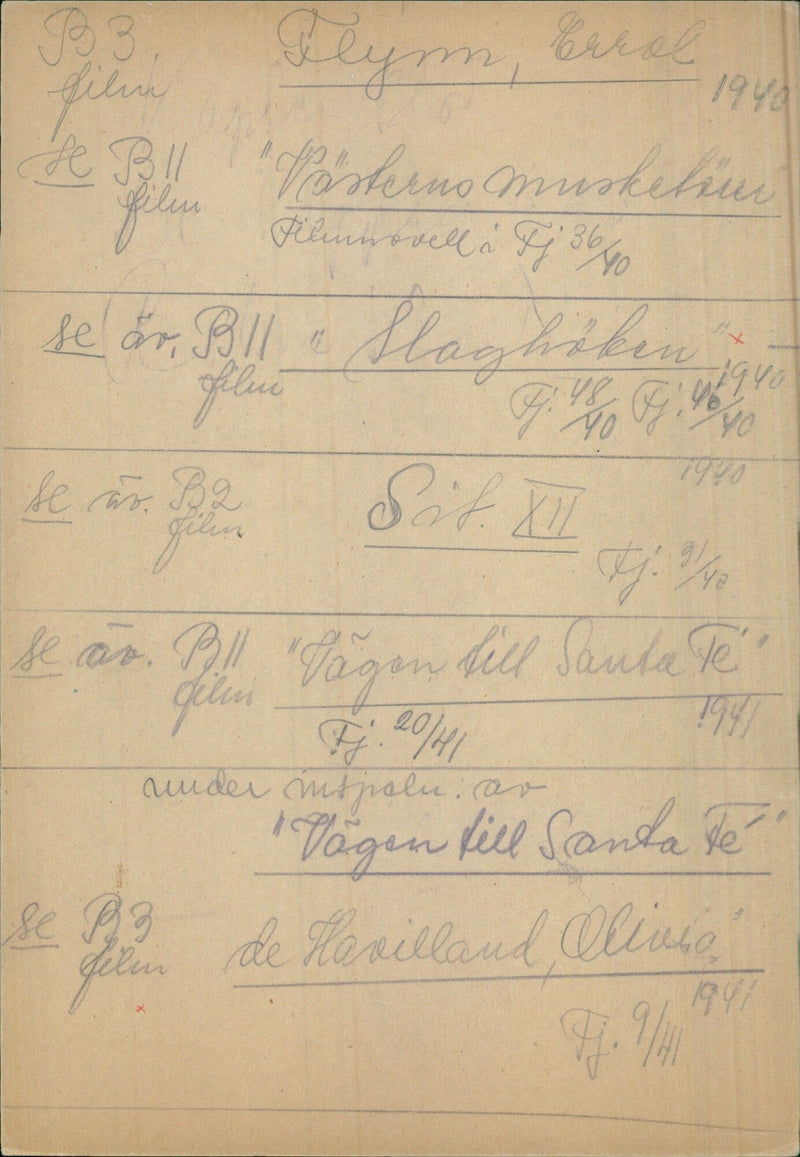 B3 Flynn, Errol
film 1940
se B11 "Västerns musketörer
film
Filmnovell i Fj 36/40
se äv. B11 "Slaghöken" x
film 1940
Fj. 48/40 Fj. 46/40
1940
se äv. B2 Sit. XII
film
Fj. 31/40
se äv. B11 "Vägen till Santa Fé"
film 1941
Fj. 20/41
under inspeln. av
"Vägen till Santa Fé"
se B3 de Havilland, Olivia"
film 1941
x
Fj. 9/41